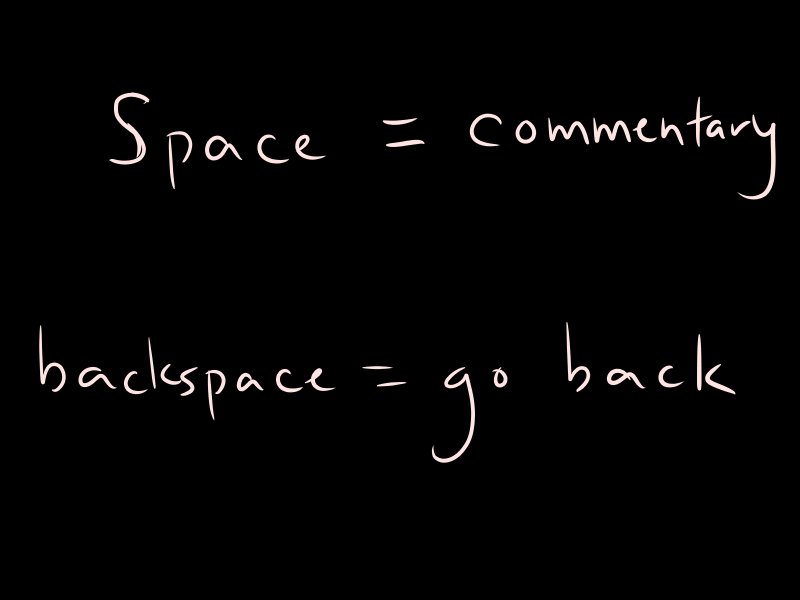 Space = commentary
backspace = go back